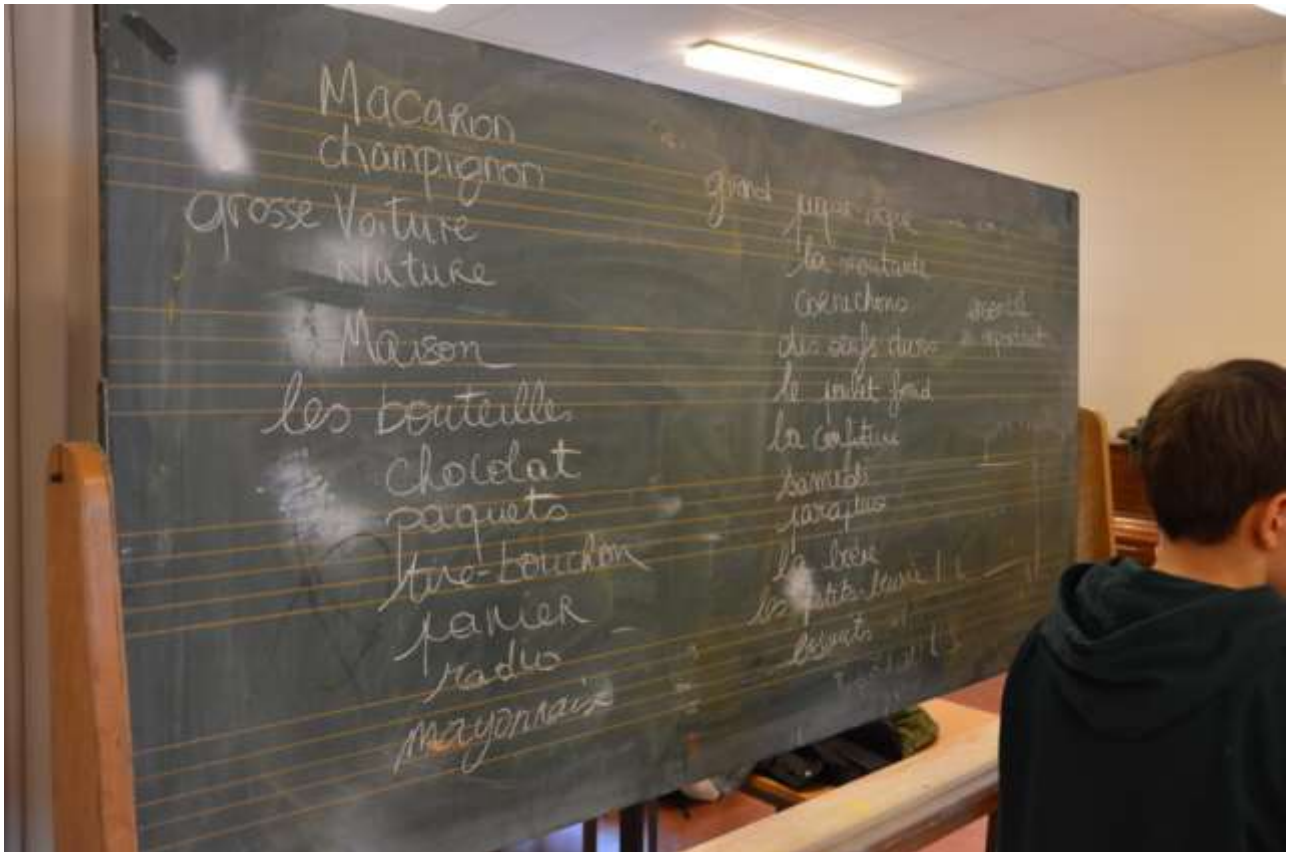 Macaron
champignon
grosse Voiture
Nature
Maison
les bouteilles
chocolat
paquets
tire-bouchon
panier
radio
mayonnaise
grand pique nique
la moutarde
cornichons
des oeufs durs
le poulet froid
la confiture
samedi
parapluie
les petits
biscuits